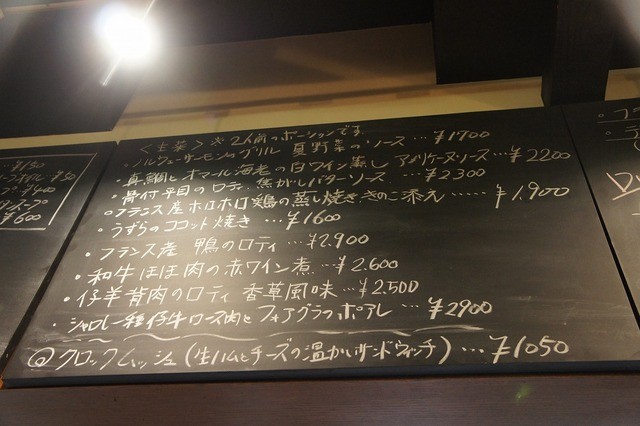 <主菜> ※2人前のポーションです。
・ノルウェーサーモンのグリル 夏野菜のソース…¥1700
・真鯛とオマール海老の白ワイン蒸し アメリケーヌソース…¥2200
・骨付平目のロティ 焦がしバターソース…¥2300
・フランス産ホロホロ鶏の蒸し焼き きのこ添え……¥1,900
・うずらのココット焼き…¥1600
・フランス産 鴨のロティ…¥2,900
・和牛ほほ肉の赤ワイン煮…¥2,600
・仔羊背肉のロティ 香草風味…¥2,500
・シャロレー種仔牛ロース肉とフォアグラのポアレ…¥2900
◎クロックムッシュ(生ハムとチーズの温かいサンドウィッチ)…¥1050
¥150
¥50
¥400
¥600